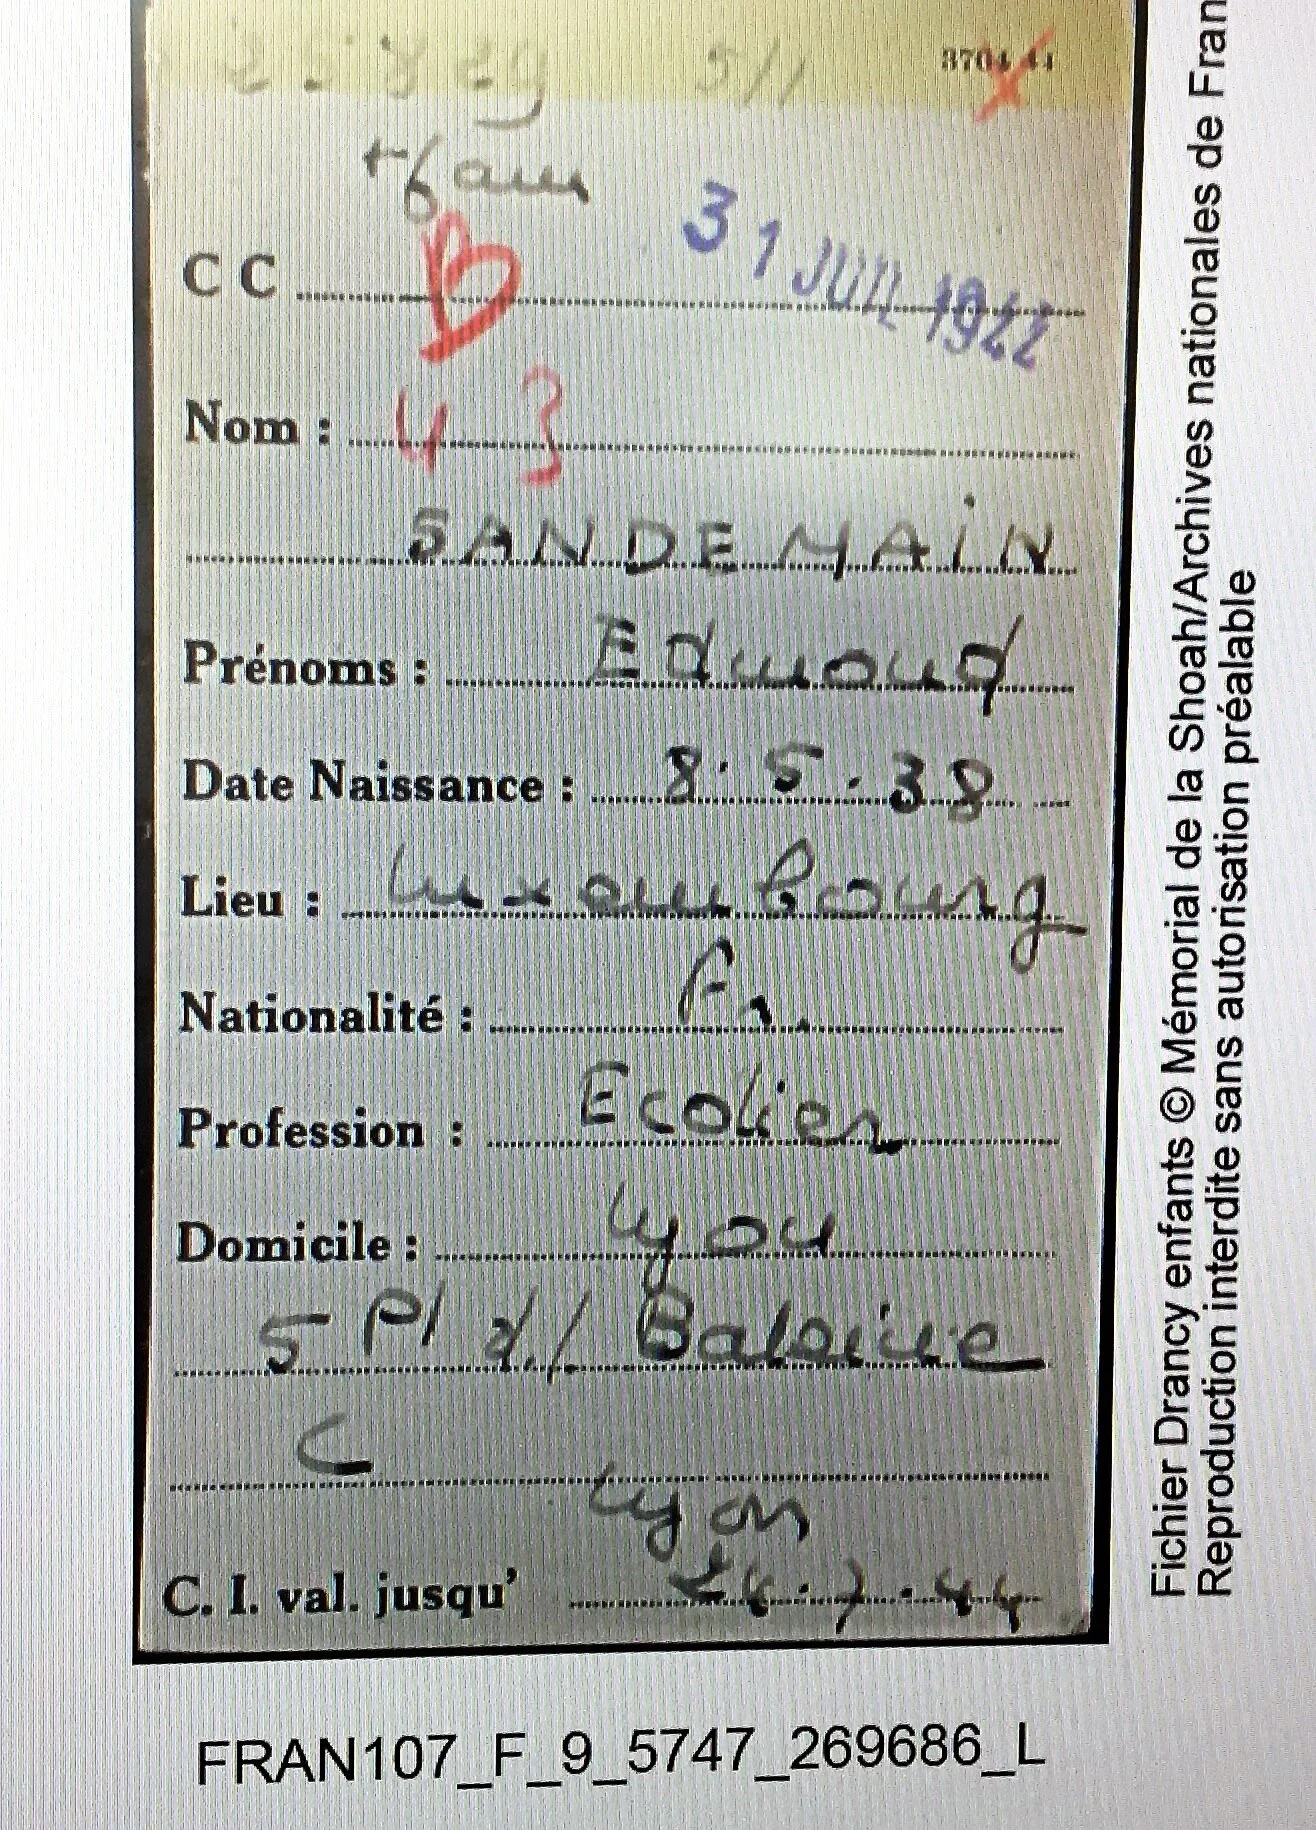 3704 44
+ fam
31 JUIL 1944
CC B
Nom : 4 3
SANDEMAIN
Prénoms : Edmond
Date Naissance : 8.5.38
Lieu : Luxembourg
Nationalité : Fr.
Profession : Ecolier
Domicile : Lyon
5 Pl d./ Baleine
C
Lyon
C. I. val. jusqu' 24.7.44
FRAN107_F_9_5747_269686_L
Fichier Drancy enfants © Mémorial de la Shoah/Archives nationales de Fran
Reproduction interdite sans autorisation préalable